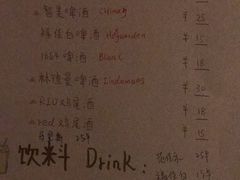 智美啤酒 Chimay ¥ 25
福佳白啤酒 Hoegaarden ¥ 15
1664 啤酒 Blanc ¥ 18
林德曼啤酒 Lindemans ¥ 30
RIO鸡尾酒 ¥ 18
red 鸡尾酒 ¥ 15
25¥
饮料 Drink:
25¥